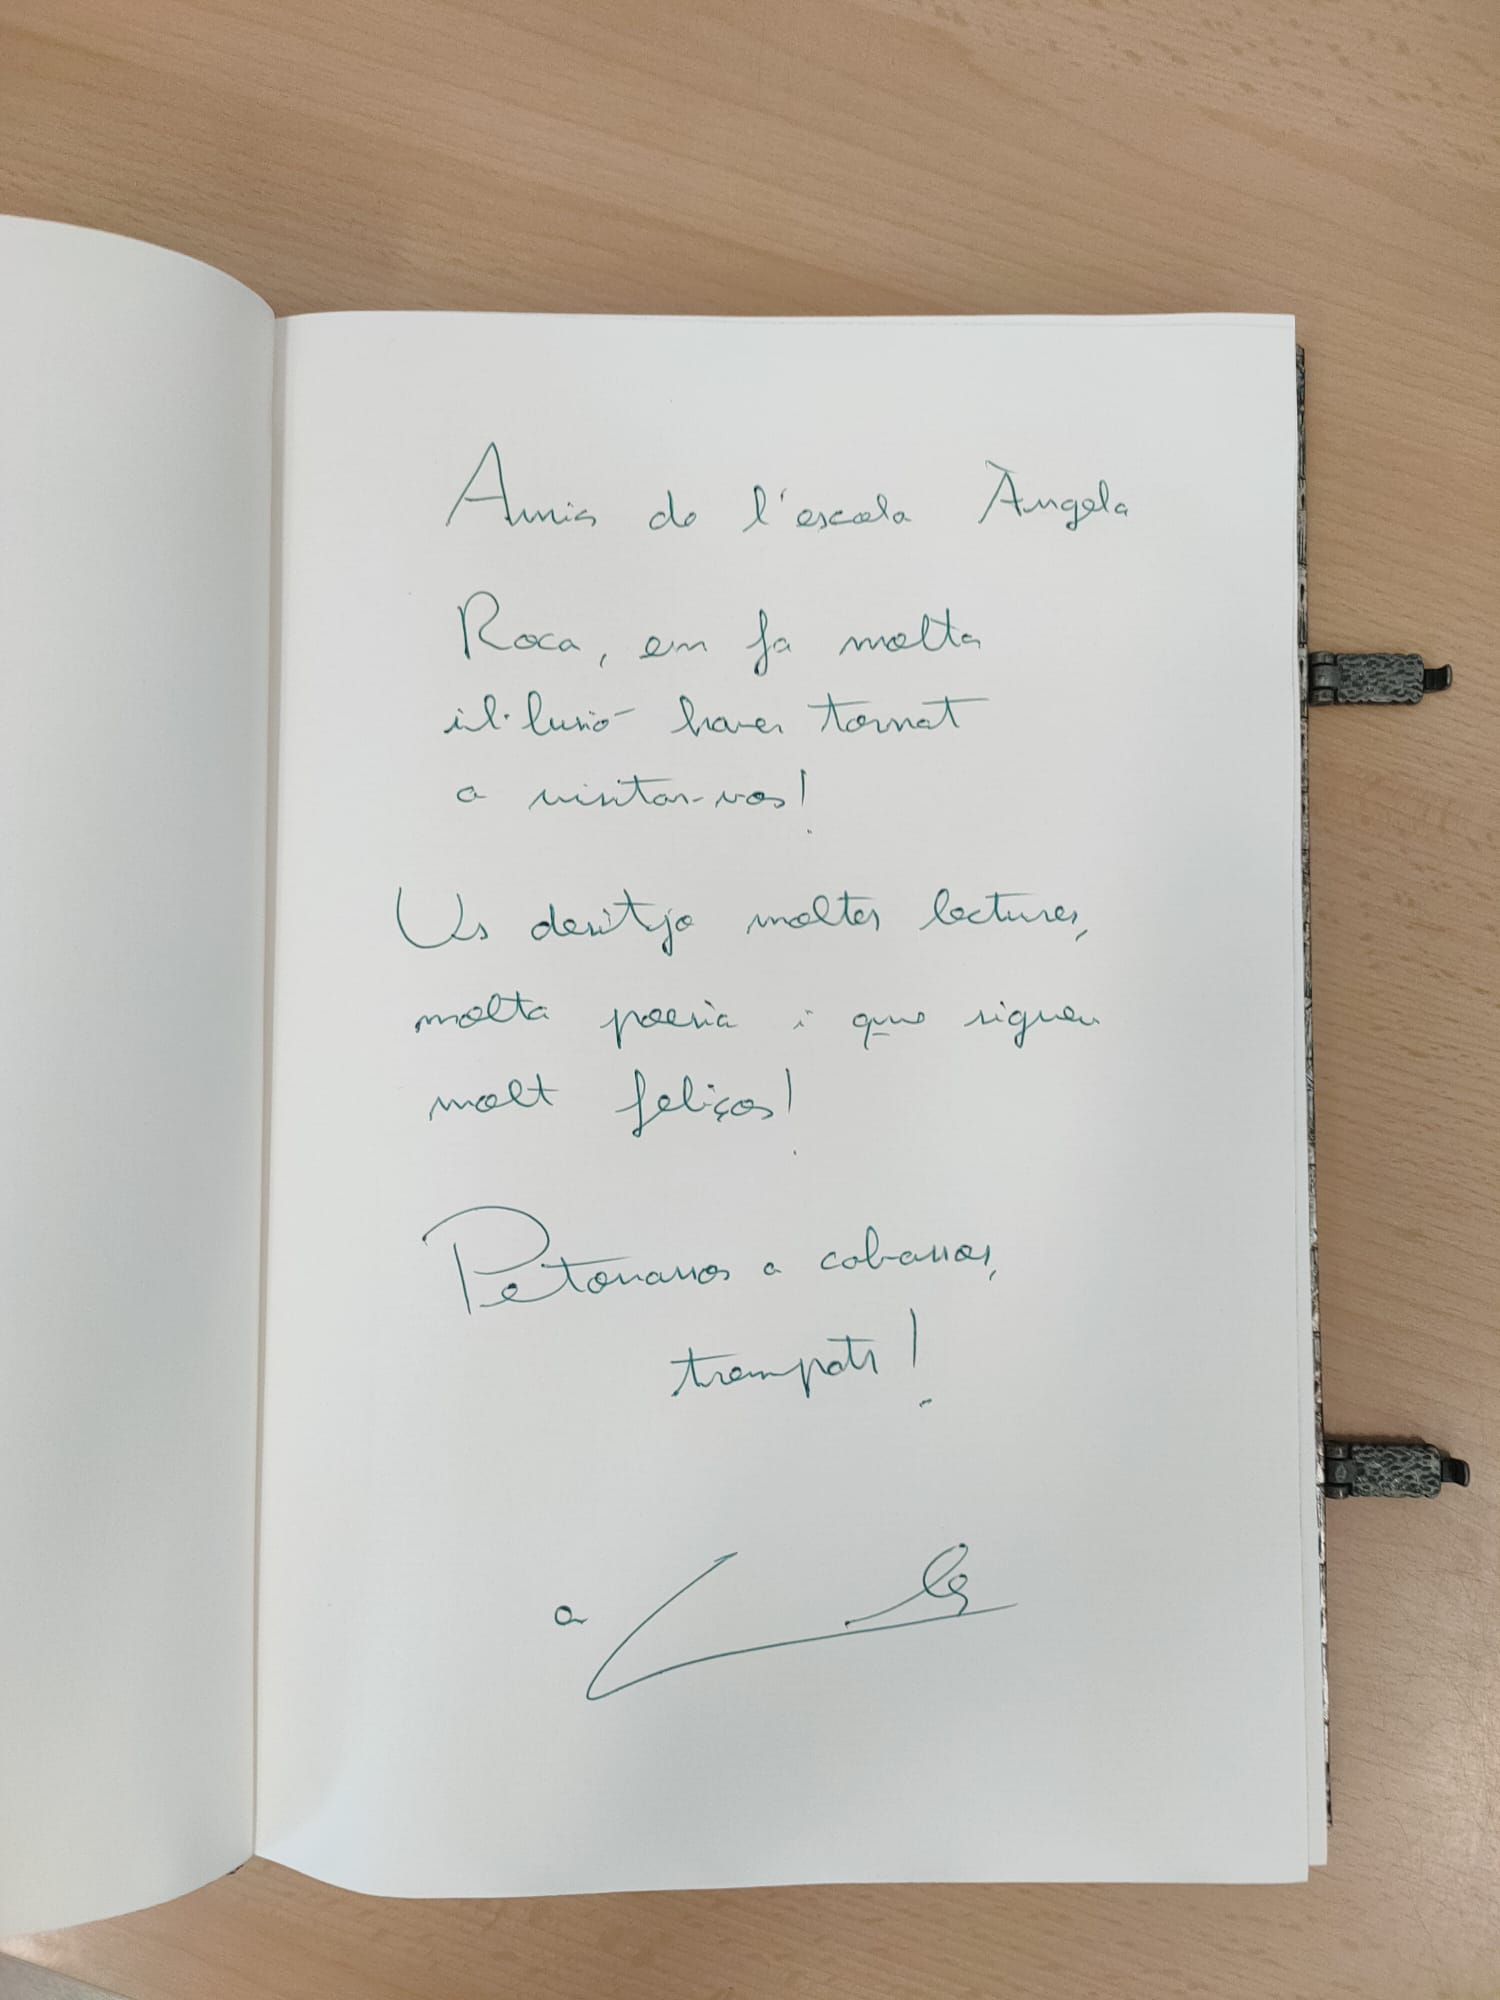 Amics de l'escola Àngela
Roca, em fa molta
il·lusió haver tornat
a visitar-vos!
Us desitjo moltes lectures,
molta poesia i que sigueu
molt feliços!
Petonassos a cabassos,
trempats!